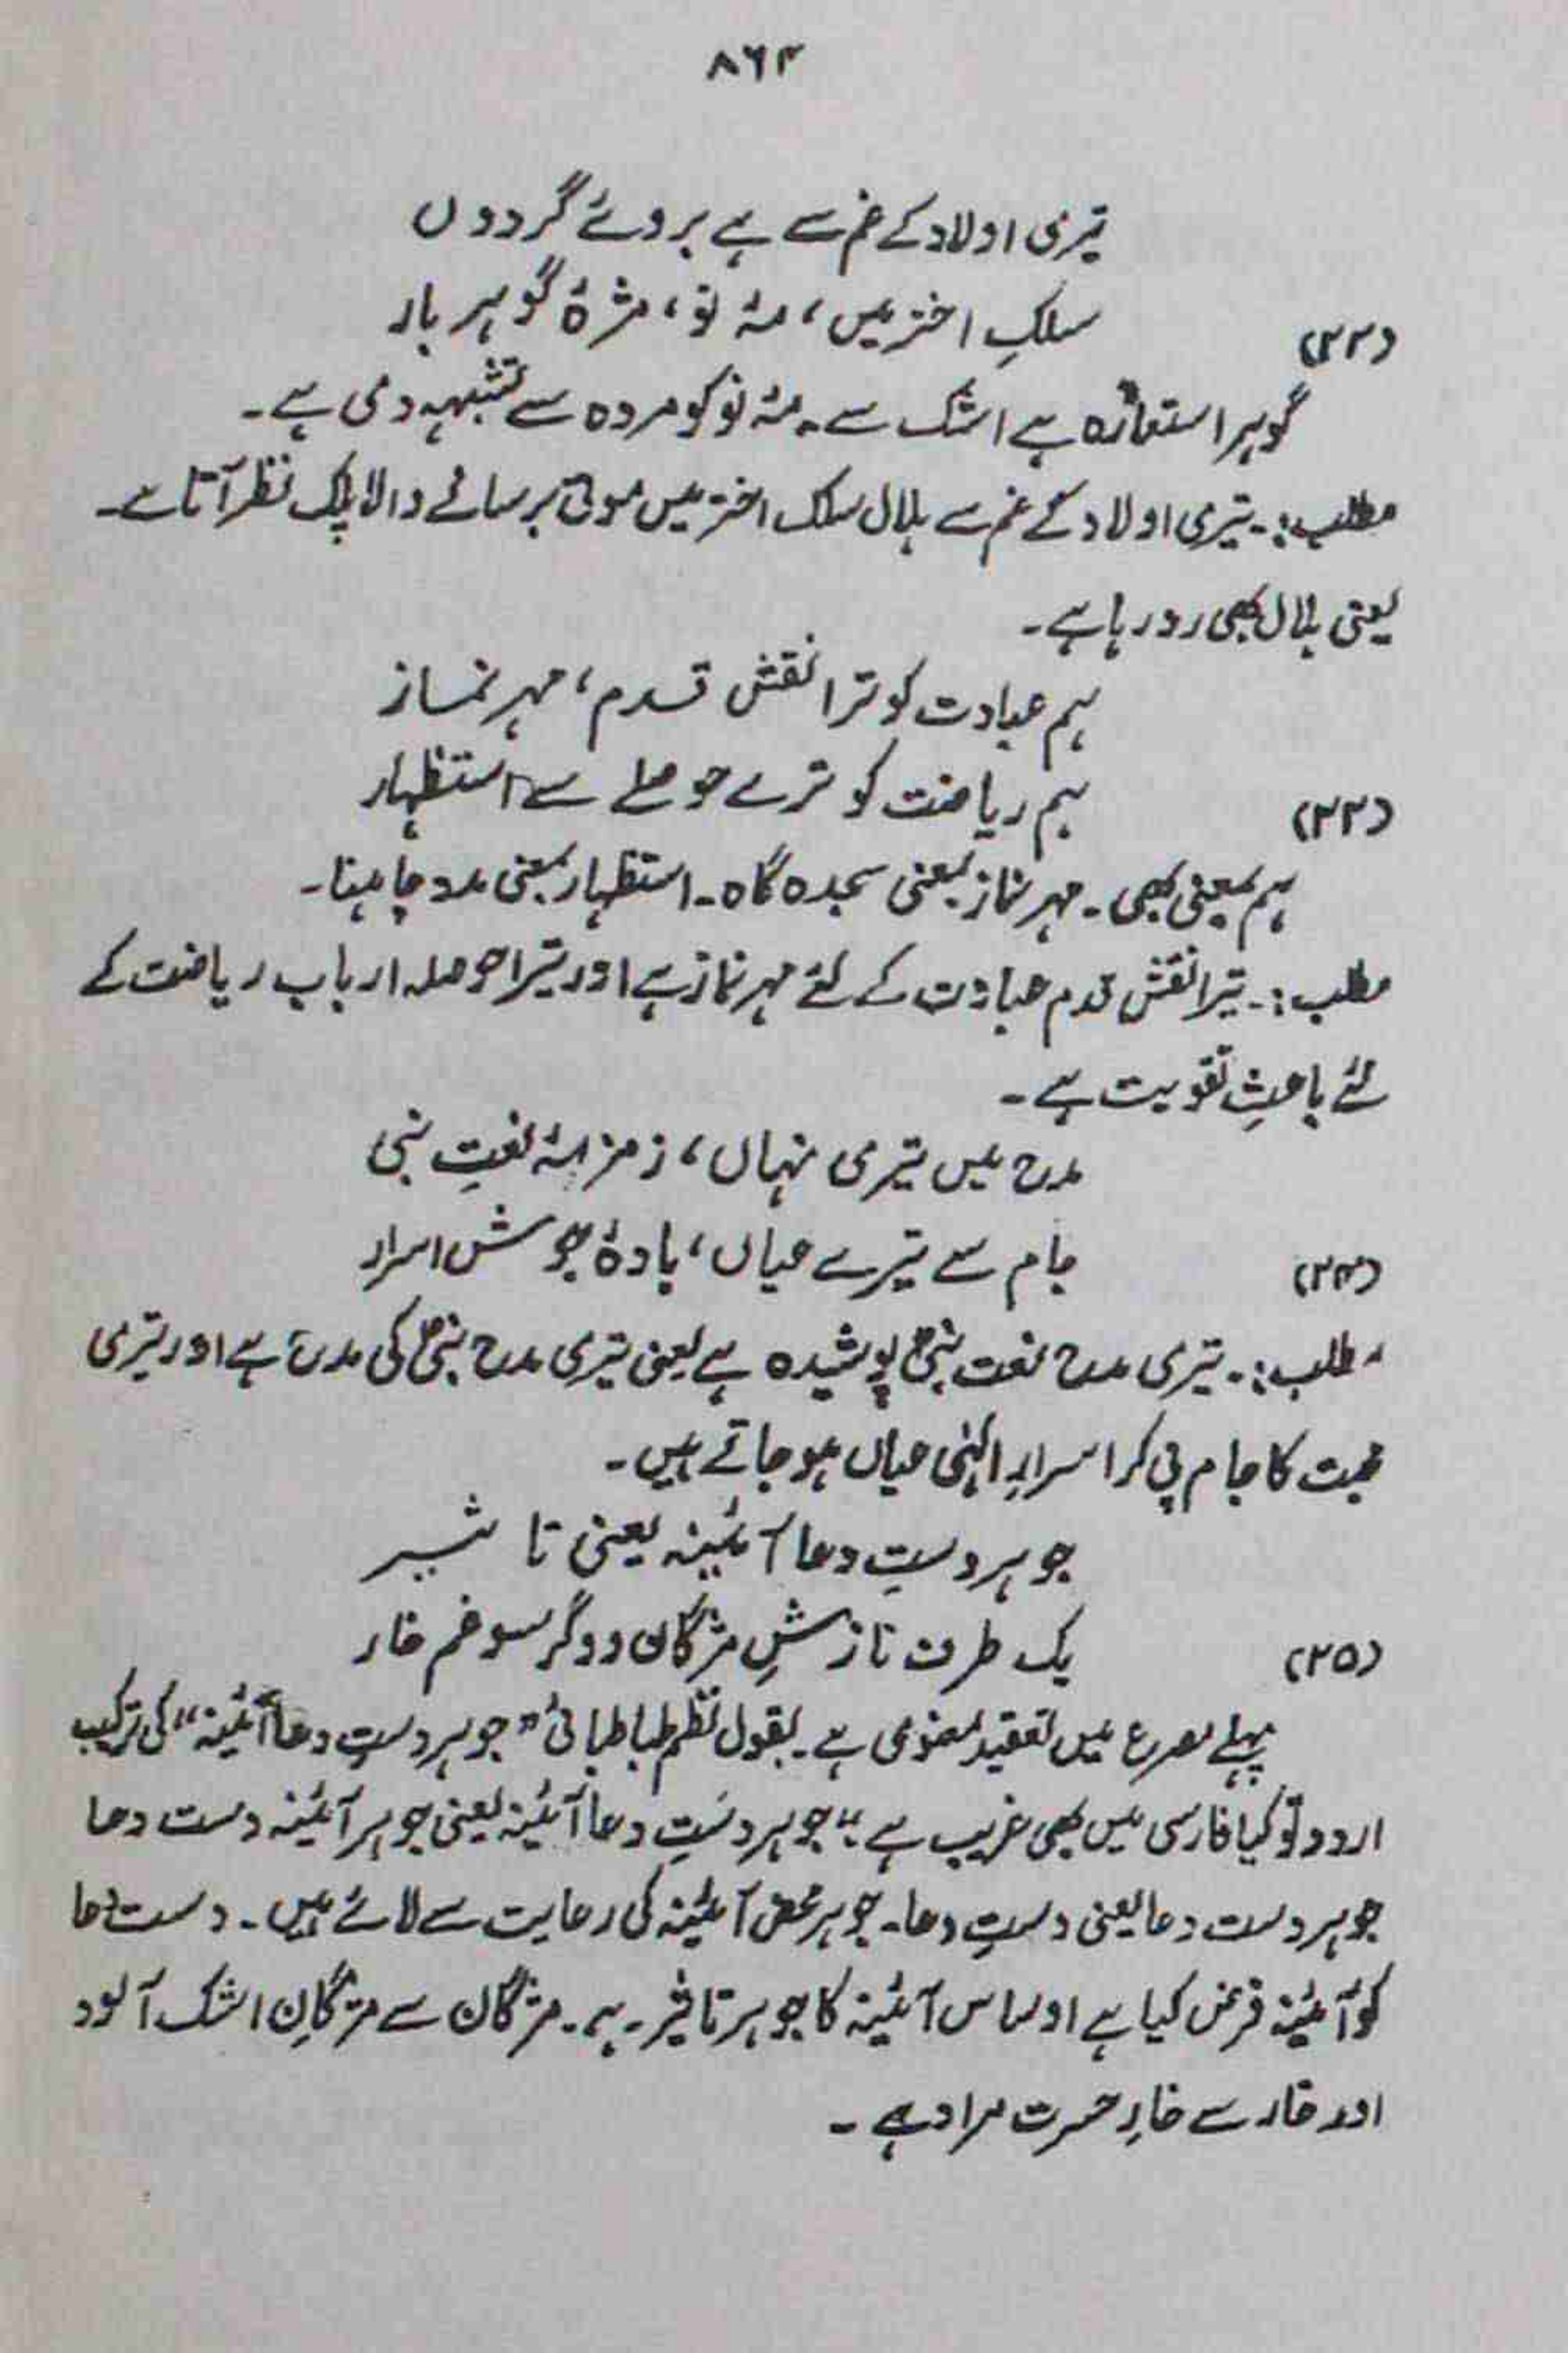 ۸۶۴
تیری اولاد کے غم سے ہے بروئے گردوں
سلکِ اختر میں، مۂ نو، مژۂ گوہر بار
(۳۲)
گوہر استعارہ ہے اشک سے۔ مۂ نو کو مردہ سے تشبیہہ دی ہے۔
مطلب:۔ تیری اولاد کے غم سے ہلال سلک اختر میں موتی برسانے والا پلک نظر آتا ہے۔
یعنی ہلال بھی رو رہا ہے۔
ہم عبادت کو ترا نقش قدم، مہر نماز
ہم ریاضت کو ترے حوصلے سے استظہار
(۳۳)
ہم بمعنی بھی۔ مہر نماز بمعنی سجدہ گاہ۔ استظہار بمعنی مدد چاہنا۔
مطلب:۔ تیرا نقش قدم عبادت کے لئے مہر نماز ہے اور تیرا حوصلہ ارباب ریاضت کے
لئے باعثِ تقویت ہے۔
مدح میں تیری نہاں، زمزمۂ نعتِ نبی
جام سے تیرے عیاں، بادۂ جوشش اسرار
(۳۴)
مطلب:۔ تیری مدح نعت نبیؐ پوشیدہ ہے یعنی تیری مدح نبیؐ کی مدح ہے اور تیری
محبت کا جام پی کر اسرارِ الٰہی عیاں ہو جاتے ہیں۔
جوہر دستِ دعا آئینہ یعنی تاثیر
یک طرف نازشِ مژگاں و دگر سو غم خار
(۳۵)
پہلے مصرع میں تعقید معنوی ہے۔ بقول نظم طباطبائی "جوہر دستِ دعا آئینہ" کی ترکیب
اردو تو کیا فارسی میں بھی غریب ہے "جوہر دستِ دعا آئینہ یعنی جوہر آئینہ دست دعا
جوہر دست دعا یعنی دستِ دعا۔ جوہر محض آئینہ کی رعایت سے لائے ہیں۔ دست دعا
کو آئینہ فرض کیا ہے اور اس آئینہ کا جوہر تاثیر ہے۔ مژگان سے مژگانِ اشک آلود
اور خار سے خارِ حسرت مراد ہے۔